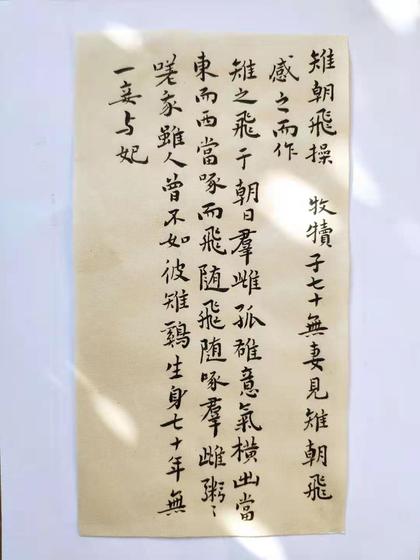 雉朝飛操　牧犢子七十無妻見雉朝飛
感之而作
雉之飛于朝日羣雌孤雄意氣橫出當
東而西當啄而飛随飛随啄羣雌粥〻
嗟哉雖人曾不如彼雉鷄生身七十年無
一妾与妃